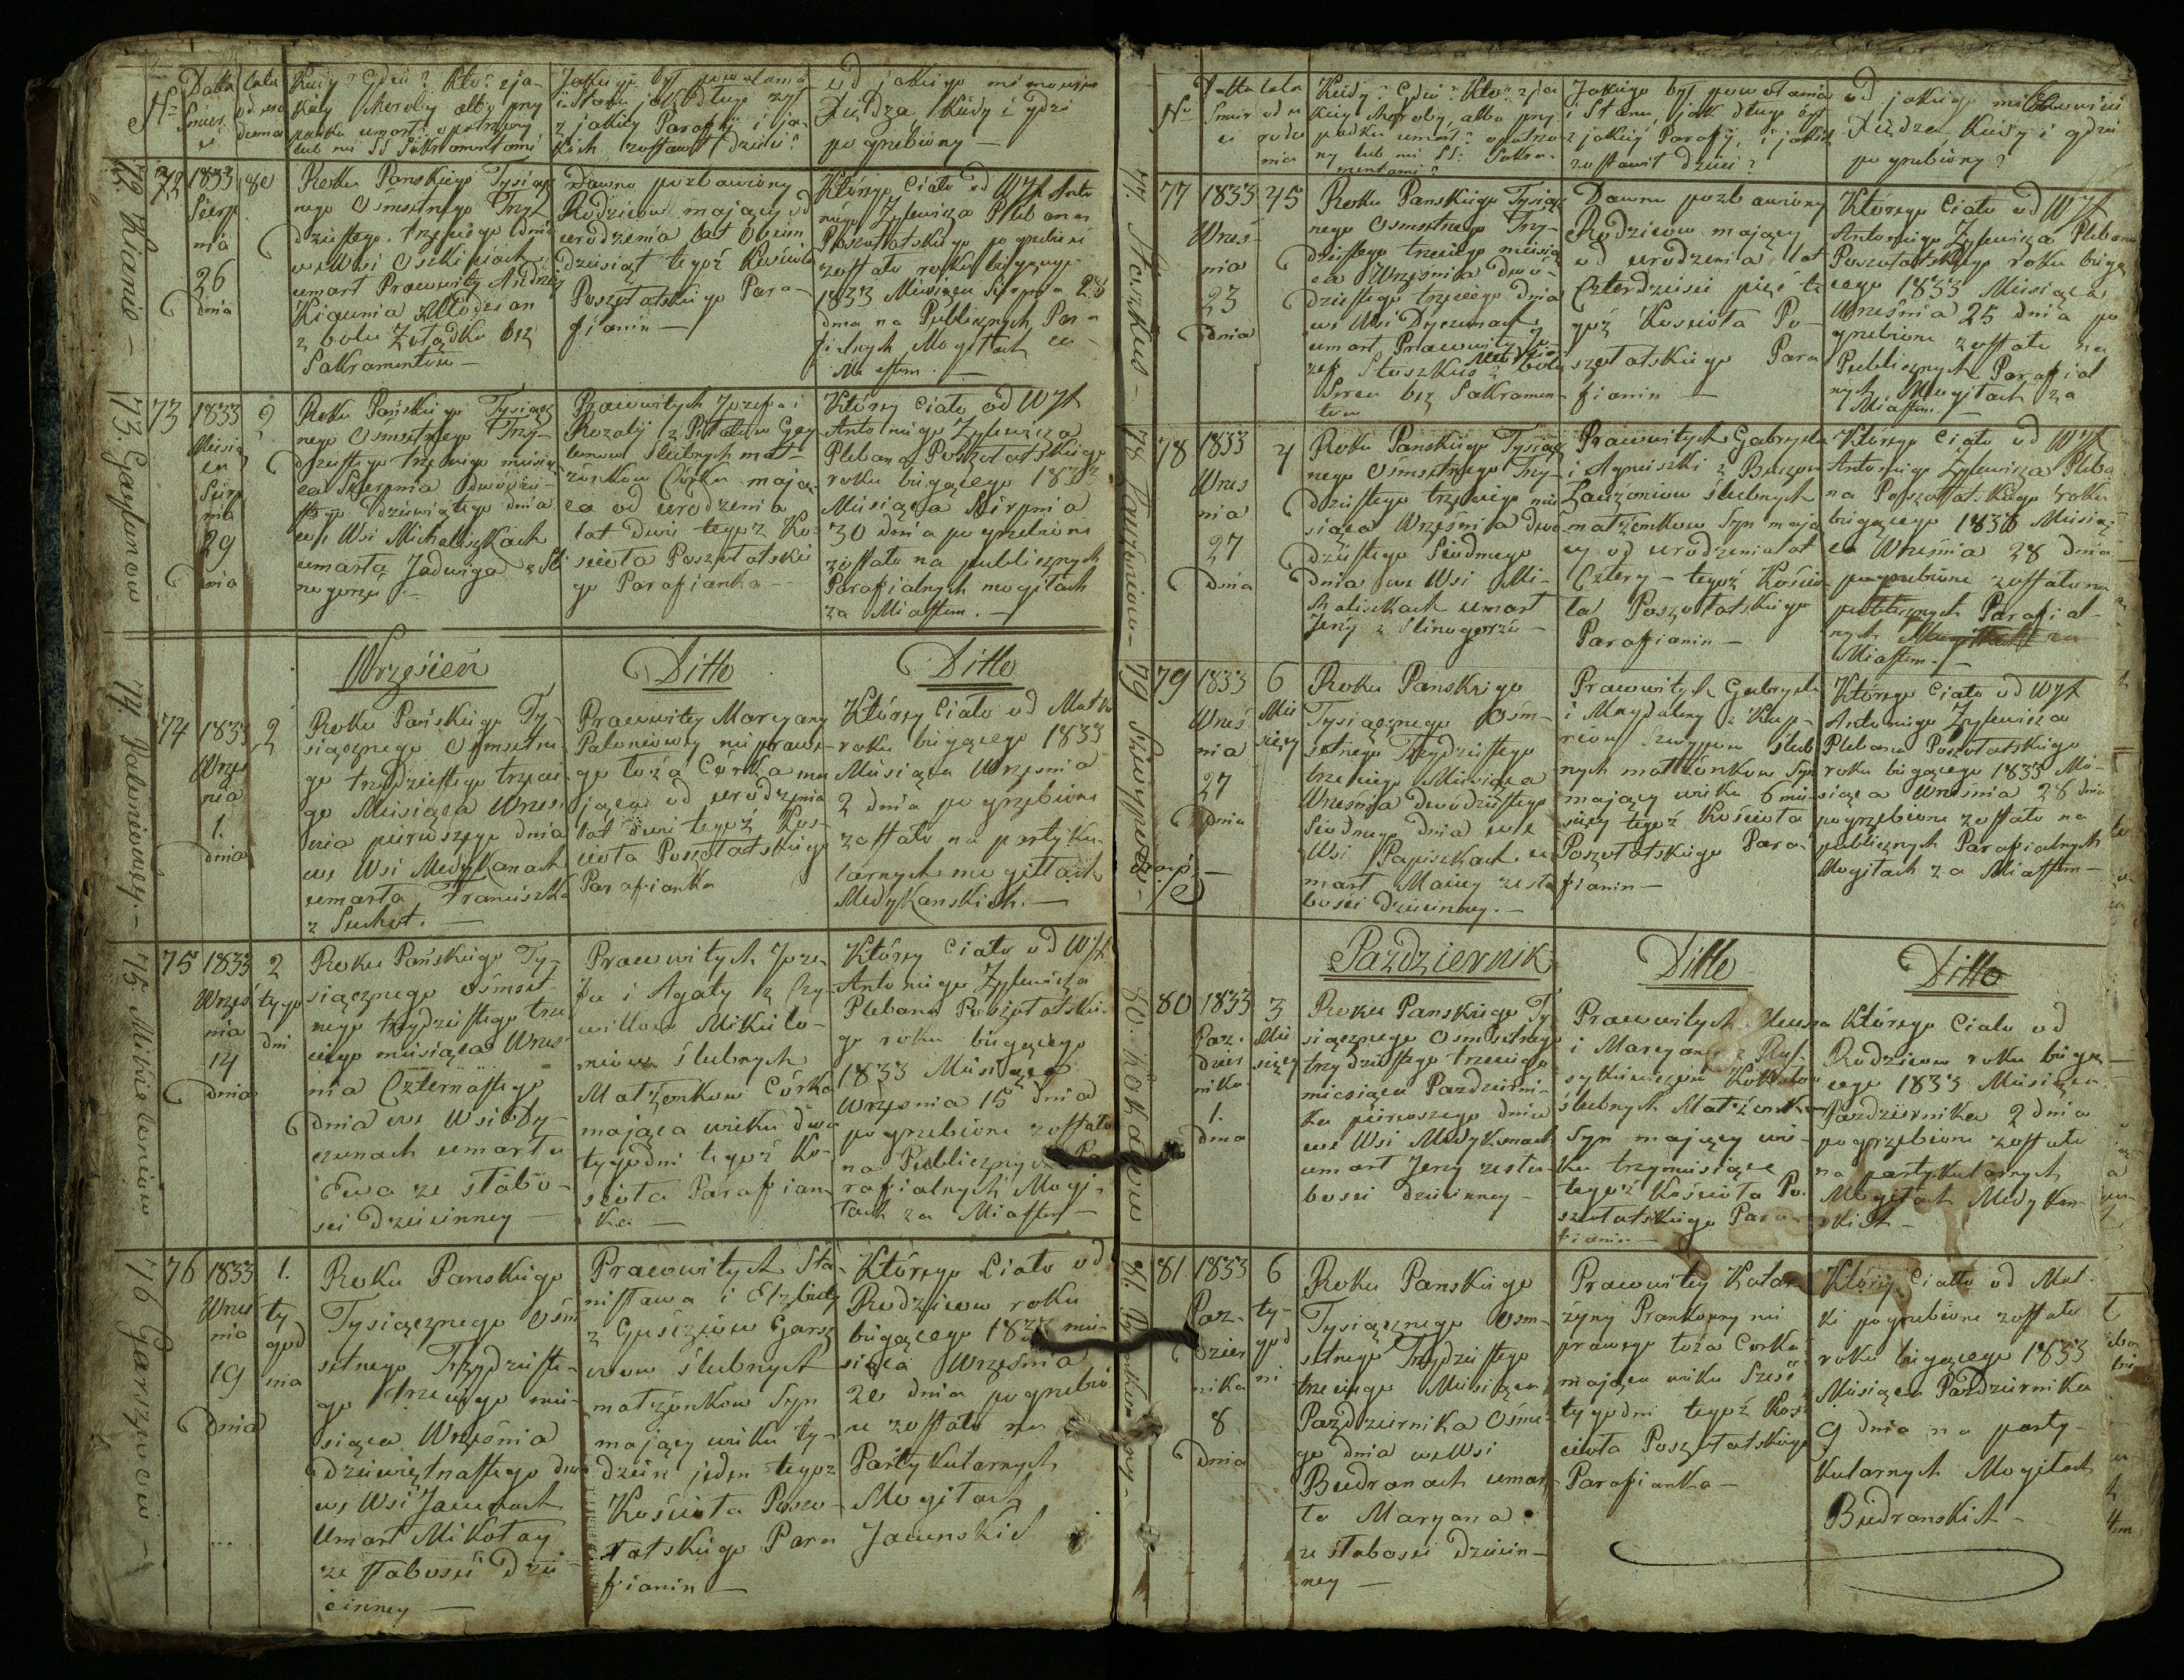 Nr
Datta
Śmier
ci
Lata
od uro
dzenia
Kiedy? Gdzie? Kto? z ja-
kiey choroby albo przy
padku umarł? opatrzony
lub nie SS Sakramentami
Jakiego był powołania
i Stanu jak długo żył
z jakiey Parafii i ja-
kich zostawił dzieci?
od jakiego mianowicie
Xiędza kiedy i gdzie
pogrzebiony —
72. Kiaunis —
72
1833
Sierp
nia
26
dnia
80
Roku Panskiego Tysiącz
nego Osmsetnego Trzy
dziestego trzeciego dnia
we Wsi Oszkiniach
umarł Prawowity Andrzey
Kiaunia Młodzian
z bolu Żołądka bez
Sakramentow —
Dawno pozbawiony
Rodzicow mający od
urodzenia lat Osim
dziesiąt tegoż Kościoła
Poszołatskiego Para-
fianin —
Którego Ciało od WJX Anto
niego Zylewicza Plebana
Poszołatskiego pogrzebione
zostało roku bieżącego
1833 Miesiąca Sierpnia 28
dnia na Publicznych Para
fialnych Mogiłach za
Miastem. —
73. Gaylunow
73
1833
Miesią
ca
Sierp
nia
29
dnia
2
Roku Pańskiego Tysiącz
nego Osmsetnego Trzy-
dziestego trzeciego miesią
ca Sierpnia dwódzie-
stego dziewiątego dnia
we Wsi Michaliszkach
umarła Jadwiga z Sli
nogorzu —
Prawowitych Jozefa i
Rozalij z Pitałow Gay
lunow ślubnych mał-
żonkow Córka mają-
ca od urodzenia
lat dwie tegoż Ko-
scioła Poszołatskie
go Parafianka —
Którey Ciało od WJX
Antoniego Zylewicza
Plebana Poszołatskiego
roku bieżącego 1833
Miesiąca Sierpnia
30 dnia pogrzebione
zostało na publicznych
Parafialnych mogiłach
za Miastem. —
Wrzesień
Ditto
Ditto
74 Paloniowny —
74
1833
Wrze
nia
1.
dnia
2
Roku Pańskiego Ty-
siącznego Osmsetne
go trzydziestego trzecie
go Miesiąca Wrześ-
nia pierwszego dnia
we Wsi Medykanach
umarła Franciszka
z Suchot. —
Prawowitey Maryany
Paloniowny nieprawe-
go łoża Córka ma
jąca od urodzenia
lat dwie tegoż Koś-
cioła Poszołatskiego
Parafianka
Którey Ciało od Matki
roku bieżącego 1833
Miesiąca Wrzesnia
2 dnia pogrzebione
zostało na partyku-
larnych mogiłach
Medykanskich. —
75. Mikielaniow
75
1833
Wrześ
nia
14
dnia
2
tygo
dni
Roku Pańskiego Ty-
siącznego ośmset-
nego trzydziestego trze
ciego miesiąca Wrześ-
nia Czternastego
dnia we Wsi Dy-
czunach umarła
Ewa ze słabo-
sci dziecinney —
Prawowitych Joze-
fa i Agaty z
Mikielo-
niow ślubnych
Małżonkow Córka
mająca wieku dwa
tygodni tegoż Ko-
scioła Parafian
ka —
Którey Ciało od WJX
Antoniego Zylewicza
Plebana Poszołatskie
go roku bieżącego
1833 Miesiąca
Września 15 dnia
pogrzebione zostało
na Publicznych Pa
rafialnych Mogi-
łach za Miastem —
76 Garszwow —
76
1833
Wrześ
nia
19
dnia
1.
ty
god
nia
Roku Panskiego
Tysiącznego Ośm
setnego Trzydzieste-
go trzeciego mie-
siąca Września
dziewiętnastego dnia
we Wsi Jacunach
Umarł Mikołay
ze słabości Dzie-
cinney —
Prawowitych Sta-
nisława i Elżbiety
z Garsz
wow ślubnych
małżonkow Syn
mający wieku ty-
dzien jeden tegoż
Kościoła Poszo-
łatskiego Para
fianin —
Którego Ciało od
Rodzicow roku
bieżącego 1833 mie-
siąca Września
20 dnia pogrzebio
ne zostało na
Partykularnych
Mogiłach
Jacunskich
Nr
Datta
Śmier
ci
Lata
od u
rodze
nia
Kiedy? Gdzie? Kto? z ja
kiey choroby, albo przy-
padku umarł? opatrzo
ny lub nie SS: Sakra-
mentami?
Jakiego był powołania
i Stanu, jak długo żył
z jakiey Parafij, i jakich
zostawił dzieci?
od jakiego mianowicie
Xiędza kiedy i gdzie
pogrzebiony?
77. Stoszkus —
77
1833
Wrześ-
nia
23
dnia
45
Roku Panskiego Tysiącz
nego Osmsetnego Trzy-
dziestego trzeciego miesią
ca Wrzesnia dwó-
dziestego trzeciego dnia
we Wsi Dyczunach
umarł Prawowity Jó-
zef Stoszkus z bolu
Serca bez Sakramen-
tow
Dawno pozbawiony
Rodzicow mający
od urodzenia lat
Czterdziesci pięć te
goż Koscioła Po-
szołatskiego Para
fianin —
Którego Ciało od WJX
Antoniego Zylewicza Plebana
Poszołatskiego roku bieżą
cego 1833 Miesiąca
Września 25 dnia po
grzebione zostało na
Publicznych Parafial
nych Mogiłach za
Miastem —
78 Łauzoniow —
78
1833
Wrześ
nia
27
dnia
4
Roku Panskiego Tysiącz
nego Osmsetnego Trzy-
dziestego trzeciego mie
siąca Września dwó
dziestego Siodmego
dnia we Wsi Mi-
chaliszkach umarł
Jerzy z Slinogorzu —
Prawowitych Gabryela
i Agnieszki z
Łauzoniow ślubnych
małżonkow Syn mają
cy od urodzenia lat
Cztery — tegoż Kościo-
ła Poszołatskiego
Parafianin —
Którego Ciało od WJX
Antoniego Zylewicza Pleba
na Poszołatskiego roku
bieżącego 1833 Miesią
ca Września 28 dnia
pogrzebione zostało na
publicznych Parafial-
nych Mogiłach za
Miastem. —
79
79
1833
Wrześ
nia
27
dnia
6
Mie
sięcy
Roku Panskiego
Tysiącznego Ośm-
setnego Trzydziestego
trzeciego Miesiąca
Września dwódziestego
Siodmego dnia we
Wsi Papiszkach u
marł Maciey ze sła
bości dziecinney. —
Prawowitych Gabryela
i Magdaleny z
ślub
nych małżonkow Syn
mający wieku 6 mie-
sięcy tegoż Kościoła
Poszołatskiego Para-
fianin —
Którego Ciało od WJX
Antoniego Zylewicza
Plebana Poszołatskiego
roku bieżącego 1833 Mie-
siąca Wrzesnia 28 dnia
pogrzebione zostało na
publicznych Parafialnych
Mogiłach za Miastem —
Pazdziernik
Ditto
Ditto
80.
80
1833
Paz-
dzier
nika
1.
dnia
3
Mie
sięcy
Roku Panskiego Ty
siącznego Osmsetnego
trzydziestego trzeciego
miesiąca Pazdzierni-
ka pierwszego dnia
we Wsi Medykanach
umarł Jerzy ze sła-
bosci dziecinney —
Prawowitych
i Maryanny z
ślubnych Małżonkow
Syn mający wie-
ku trzy miesiące
tegoż Kościoła Po-
szołatskiego Para
fianin —
Którego Ciało od
Rodzicow roku bieżą
cego 1833 Miesiąca
Pazdziernika 2 dnia
pogrzebione zostało
na partykularnych
Mogiłach Medykan
skich —
81.
81
1833
Paz-
dzier
nika
8
dnia
6
ty-
god
ni
Roku Panskiego
Tysiącznego Osm-
setnego Trzydziestego
trzeciego Miesiąca
Pazdziernika Ośme-
go dnia we Wsi
Budranach umar-
ła Maryana
ze słabosci Dziecin-
ney —
Prawowitey Katar
żyny nie
prawego łoża Corka
mająca wieku Sześć
tygodni tegoż Koś-
cioła Poszołatskiego
Parafianka —
Którey Ciało od Mat-
ki pogrzebione zostało
roku bieżącego 1833
Miesiąca Pazdziernika
9 dnia na party-
kularnych Mogiłach
Budranskich —